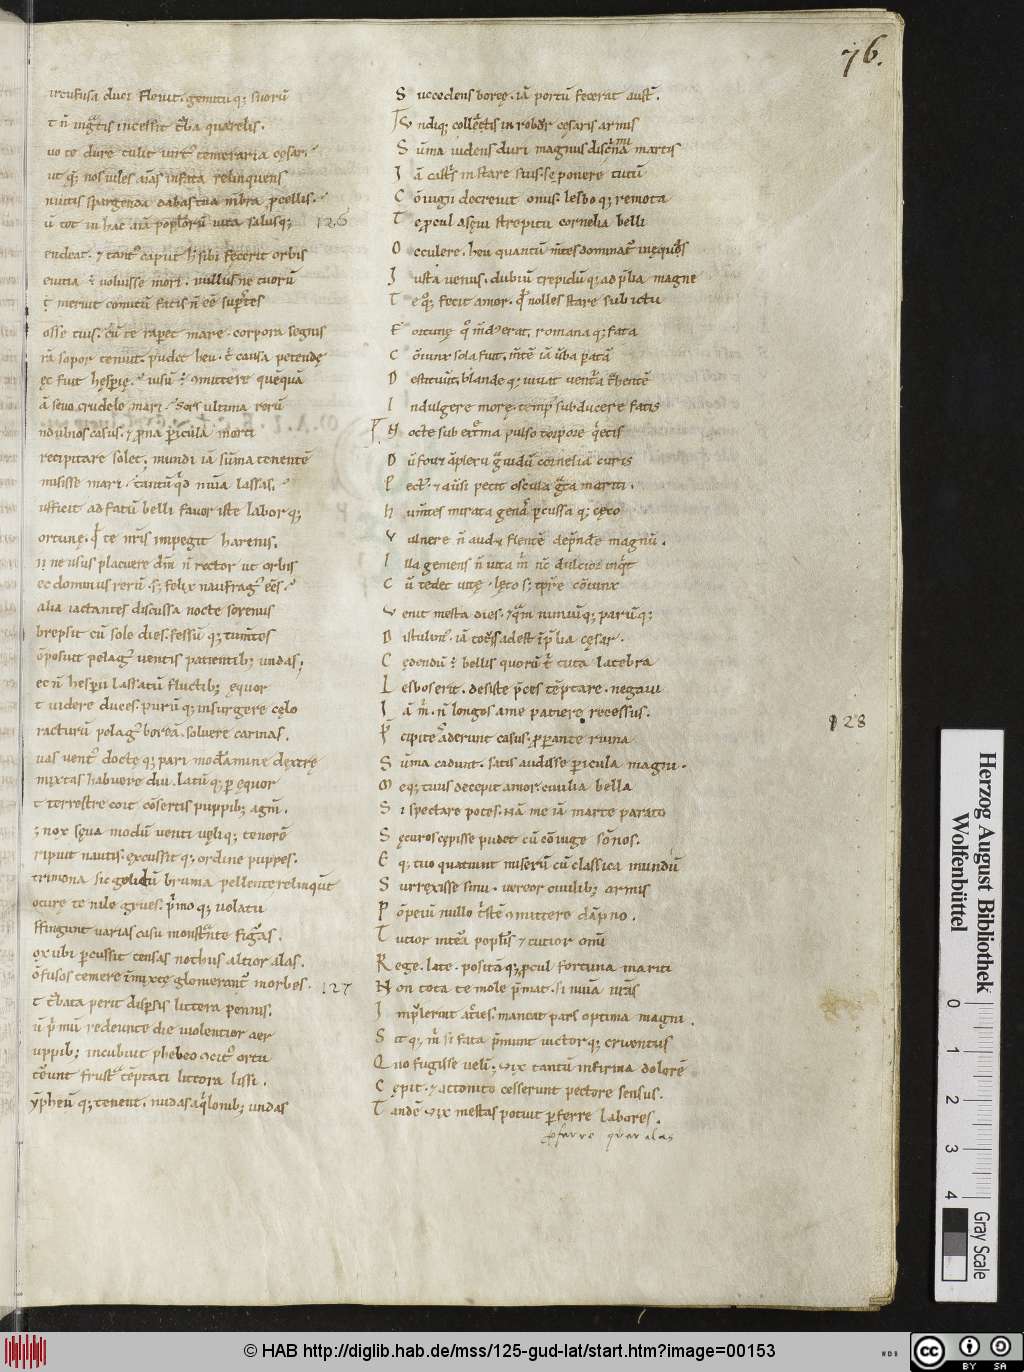 76.
ircufusa duci flevit. gemitu q; suorū
t n̄ ingratis incessit turba querelis.
uo te dure tulit virt' temeraria cęsar.
ut q; nos uiles aīas in fata relinquens
inuitis spargenda dabas tua mēbra procellis.
ū tot in hac aīa populorū uita salusq; 126
endeat. & tant' caput h̄ sibi fecerit orbis
euitia ē uoluisse mori. nullus ne tuorū
t meruit comitū fatis n̄ eē supstes
osse tuis. cū te raperet mare. corpora segnis
rā sopor tenuit. pudet heu. t̄ causa petendę
ęc fuit hesperię. uisū ē mittere quēquā
ā seuo crudele mari. Sors ultima rerū
n dubios casus. & prona pericula morti
recipitare solet; mundi iā summa tenentē
misisse mari. tantū qd numina lassas.
ufficit ad fatū belli fauor iste labor q;
ortunę. qd te nris impegit harenis.
ne usus placuere dm̄ n̄ rector ut orbis
ec dominus rerū. s; felix naufrag' eēs.
alia iactantes discussa nocte serenus
brepsit cū sole dies. fessū q; tumtes
ōposuit pelag' ventis patientib; undas;
ec n̄ hesperii lassatū fluctib; ęquor
t videre duces. purū q; insurgere cęlo
racturū pelag' boreā. soluere carinas.
uas vent' doctę q; pari moderamine dextrę
mixtas habuere diu. latū q; p ęquor
t terrestre coit cōsertis puppib; agm̄.
; nox sęua modū venti uęliq; tenorē
ripuit nautis. excussit q; ordine puppes.
trimona sic gelidū bruma pellente relinqut
oturę te nile grues. primo q; uolatu
ffingunt varias casu monstrante figuras.
ox ubi percussit tensas nothus altior alas.
ōfusos temere īmixtę glomerant' in orbes. 127
t turbata perit dispersis littera pennis.
ū primū redeunte die uiolentior aer
uppib; incubuit phebeo cit' ortu
tereunt frustra tēptati littora lissi.
ypheū q; tenent. nudas aqlonib; undas
S uccedens boreę. iā portū fecerat aust'.
V ndiq; collatis in robur cęsaris armis
S ūma uidens duri magnus discrimina martis
I ā castris instare suis. seponere tutū
C ōiugii decreuit onus. lesbo q; remota
T e procul a sęui strepitu cornelia belli
O cculere. heu quantū mtes dominat' in ęquas
I usta uenus. dubiū trepidū q; ad prelia magne
T e q; fecit amor. qd nolles stare sub ictu
F ortunę quo mund' erat. romana q; fata
C ōiunx sola fuit. mtē iā uerba paratā
D estituūt. blande q; iuuat ventura trahentē
I ndulgere morę. temp' subducere fatis
N octe sub extrema pulso torpore quietis
D ū fouet āplexu grauidū cornelia curis
P ect'. & auersi petit oscula grata mariti.
H umtes mirata genas percussa q; cęco
V ulnere n̄ audet flentē deprende magnū.
I lle gemens n̄ uita m̄ nc dulcior inqt
C ū tedet uitę. lęto s; tpre cōiunx
V enit mesta dies. & quam nimiūq; parūq;
D istulim'. iā totus adest ī prelia cęsar.
C ędendū ē bellis quorū t̄ tuta latebra
L esbos erit. desiste preces tēptare. negaui
I ā m̄. n̄ longos a me patiere recessus. 128
P cipites aderunt casus. properante ruina
S ūma cadunt. satis audisse pericula magni.
M eq; tuus decepit amor. ciuilia bella
S i spectare potes. Nā me iā marte parato
S ęcuros cepisse pudet cū cōiuge sōnos.
E q; tuo quatiunt miserū cū classica mundū
S urrexisse sinu. uereor ciuilib; armis
P ōpeiū nullo tristē mittere dāpno.
T utior interea poplis & tutior om̄i
R ege. late. positā q; procul fortuna mariti
N on tota te mole premat. si numina nras
I mpulerint acies. maneat pars optima magni.
S it q; m̄ si fata premunt uictor q; cruentus
Q uo fugisse uelī; vix tantū infirma dolorē
C ępit. & attonito cesserunt pectore sensus.
T andē vix mestas potuit proferre labores.
proferre querelas
Herzog August Bibliothek
Wolfenbüttel
0 1 2 3 4
Gray Scale
© HAB http://diglib.hab.de/mss/125-gud-lat/start.htm?image=00153
WDB
cc BY SA